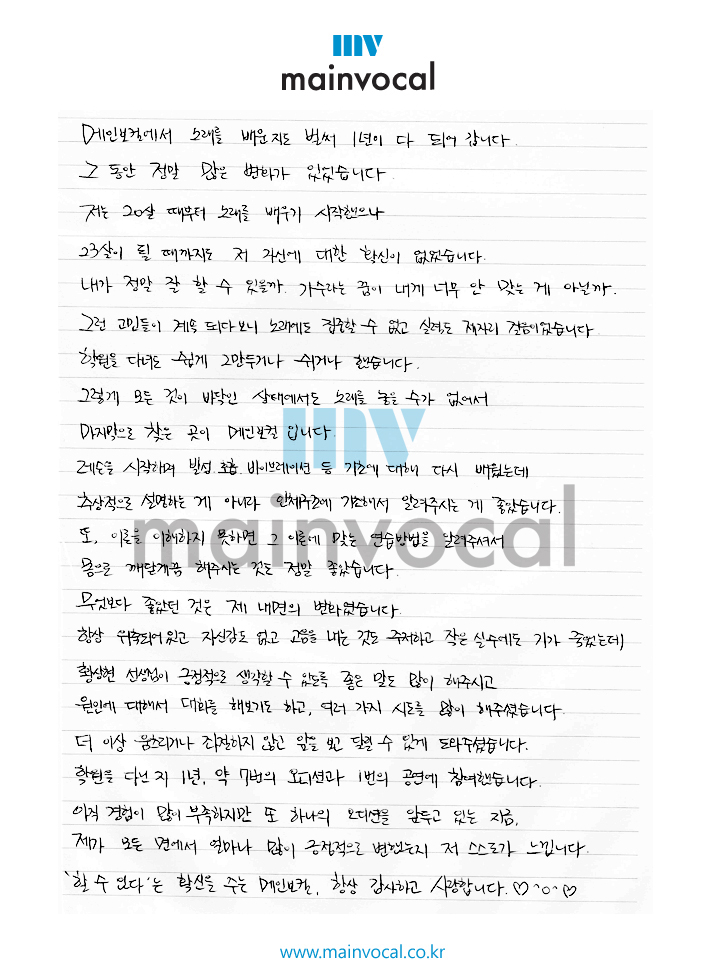 mv
mainvocal
메인보컬에서 노래를 배운지도 벌써 1년이 다 되어 갑니다.
그 동안 정말 많은 변화가 있었습니다.
저는 20살 때부터 노래를 배우기 시작했으나
23살이 될 때까지도 저 자신에 대한 확신이 없었습니다.
내가 정말 잘 할 수 있을까. 가수라는 꿈이 내게 너무 안 맞는 게 아닐까.
그런 고민들이 계속 되다보니 노래에도 집중할 수 없고 실력도 제자리 걸음이었습니다.
학원을 다녀도 쉽게 그만두거나 쉬거나 했습니다.
그렇게 모든 것이 바닥인 상태에서도 노래를 놓을 수가 없어서
마지막으로 찾은 곳이 메인보컬 입니다.
레슨을 시작하며 발성.호흡.바이브레이션 등 기초에 대해 다시 배웠는데
추상적으로 설명하는 게 아니라 인체구조에 기반해서 알려주시는 게 좋았습니다.
또, 이론을 이해하지 못하면 그 이론에 맞는 연습방법을 알려주셔서
몸으로 깨닫게끔 해주시는 것도 정말 좋았습니다.
무엇보다 좋았던 것은 제 내면의 변화였습니다.
항상 위축되어있고 자신감도 없고 고음을 내는 것도 주저하고 작은 실수에도 기가 죽었는데,
황상현 선생님이 긍정적으로 생각할 수 있도록 좋은 말도 많이 해주시고
원인에 대해서 대화를 해보기도 하고, 여러 가지 시도를 많이 해주셨습니다.
더 이상 움츠리거나 좌절하지 않고 앞을 보고 달릴 수 있게 도와주셨습니다.
학원을 다닌 지 1년, 약 7번의 오디션과 1번의 공연에 참여했습니다.
아직 경험이 많이 부족하지만 또 하나의 오디션을 앞두고 있는 지금,
제가 모든 면에서 얼마나 많이 긍정적으로 변했는지 저 스스로가 느낍니다.
'할 수 있다'는 확신을 주는 메인보컬, 항상 감사하고 사랑합니다. ♡^o^♡
mv
mainvocal
www.mainvocal.co.kr